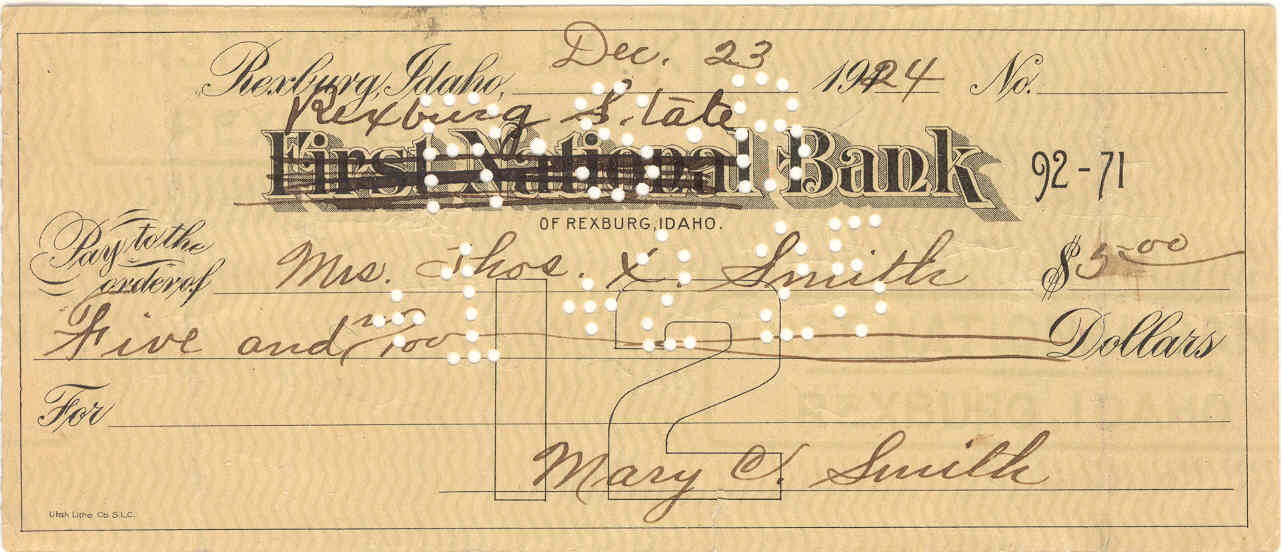 Dec. 23
Rexburg, Idaho, 1924 No.
Rexburg State
First National Bank 92-71
OF REXBURG, IDAHO.
Pay to the order of Mrs. Thos. X. Smith $5.00
Five and no/100 Dollars
For
12
Mary A. Smith
Utah Litho. Co. S.L.C.